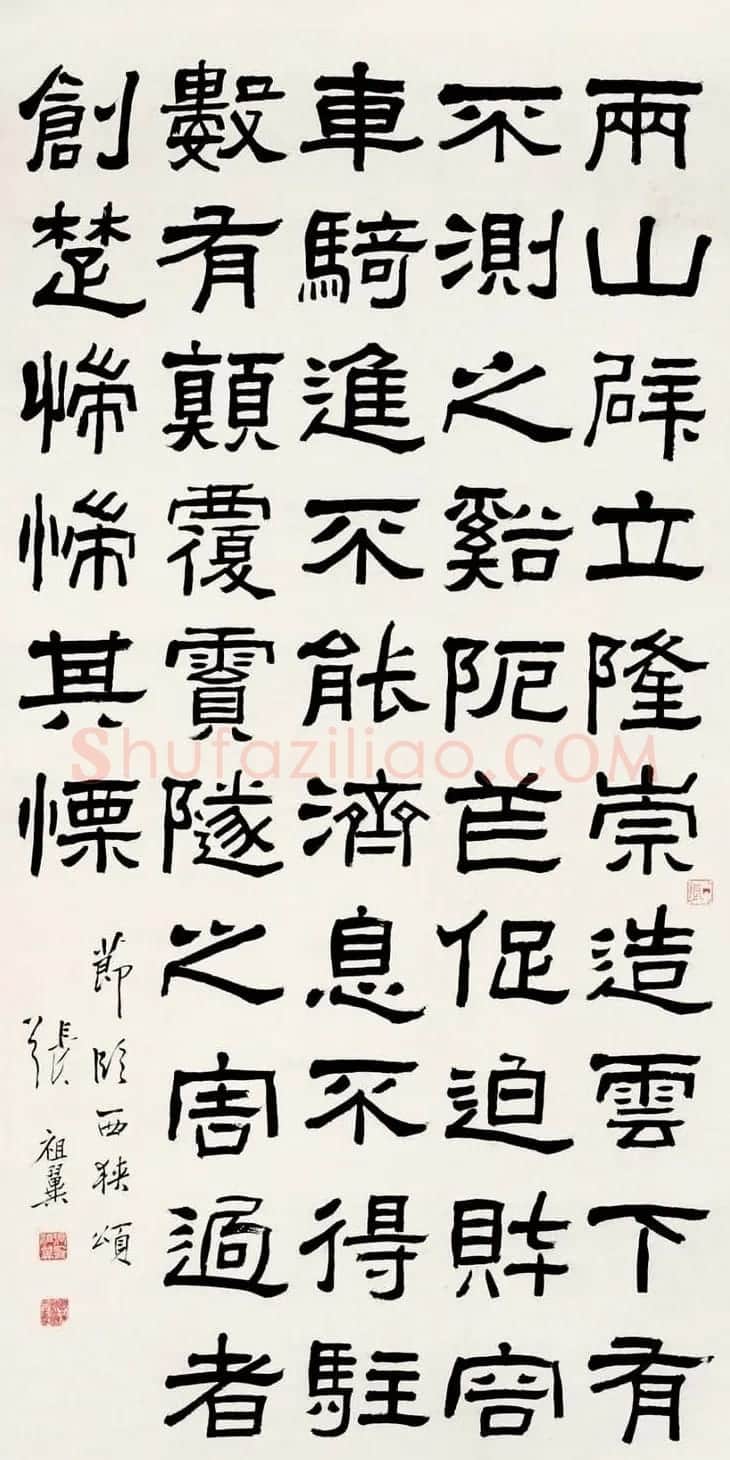 兩山辟立隆崇造雲下有
不測之谿阨苲促迫財容
車騎進不能濟息不得駐
數有顛覆霣隧之害過者
創楚惴惴其慄
節臨西狹頌
張祖翼
Shufaziliao.COM